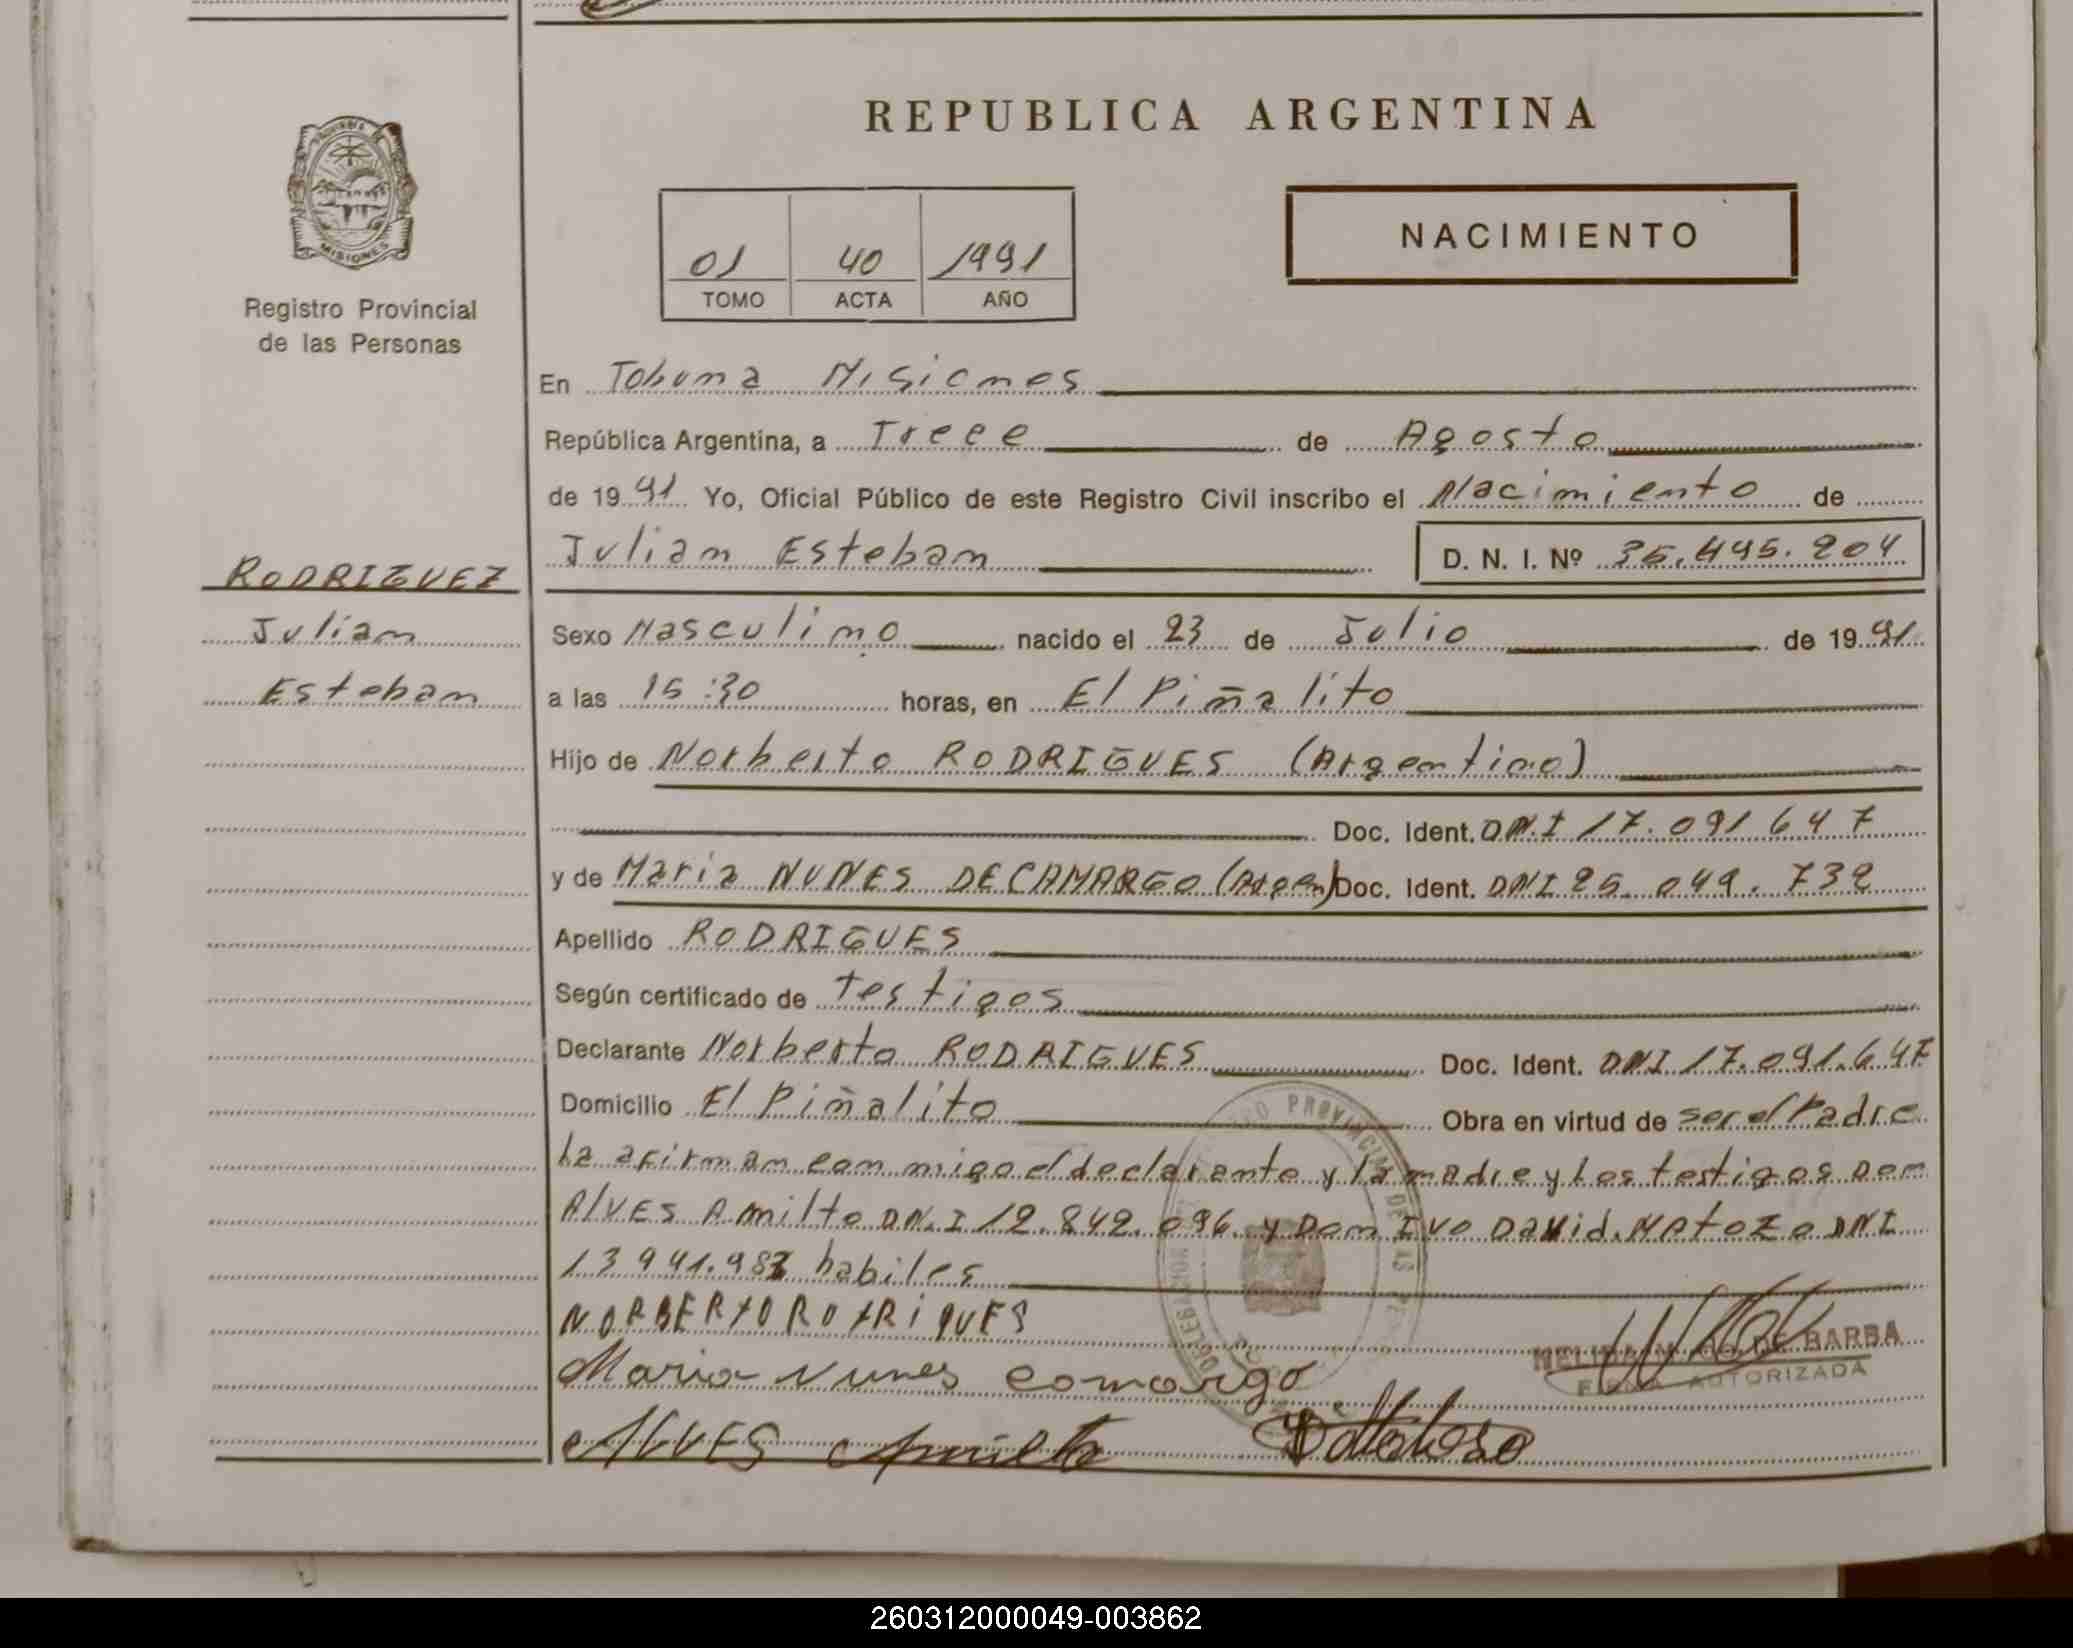 REPUBLICA ARGENTINA
PROVINCIA
MISIONES
Registro Provincial
de las Personas
01 40 1991
TOMO ACTA AÑO
NACIMIENTO
En Tobuna Misiones
República Argentina, a Trece de Agosto
de 1991 Yo, Oficial Público de este Registro Civil inscribo el Nacimiento de
Julian Esteban D. N. I. Nº 36.445.204
RODRIGUEZ
Julian
Esteban
Sexo Masculino nacido el 23 de Julio de 1991
a las 15:30 horas, en El Piñalito
Hijo de Norberto RODRIGUES (Argentino)
Doc. Ident. DN.I 17.091647
y de Maria NUNES DECAMARGO (Argen) Doc. Ident. DNI 25.049.732
Apellido RODRIGUES
Según certificado de testigos
Declarante Norberto RODRIGUES Doc. Ident. DNI 17.091.647
Domicilio El Piñalito Obra en virtud de ser el Padre
La afirman con migo el declarante y la madre y los testigos Don
AlVES Amilto DN.I 12.842.096 y Don IVO David. MATOZO DNI
13941.983 habiles
NORBERTO ROTRIGUES
Maria Nunes comargo
AlVES Amilto
DE BARBA
FIRMA AUTORIZADA
PROVINCIAL DE LAS
260312000049-003862